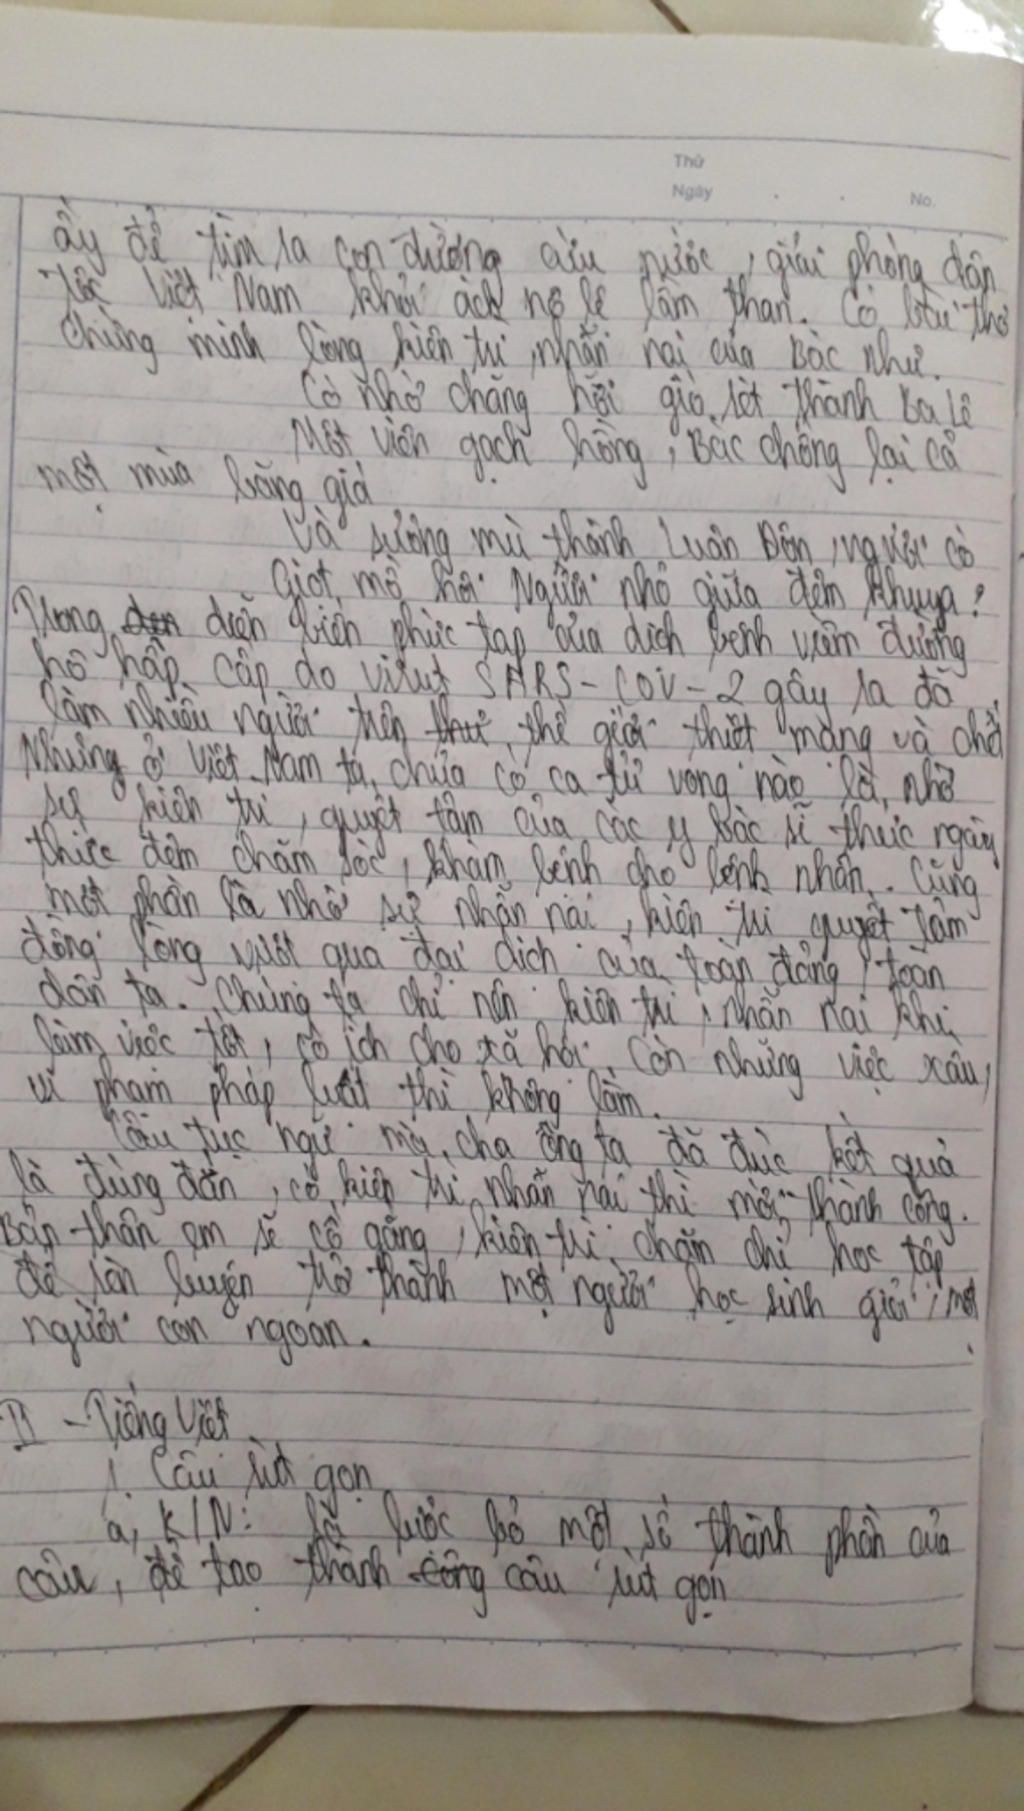 Thứ
Ngày . . No.
ấy để tìm ra con đường cứu nước, giải phóng dân
tộc Việt Nam khỏi ách nô lê lầm than. Có bài thơ
chứng minh lòng kiên trì, nhẫn nại của Bác như.
Có nhớ chăng hỡi gió rét thành Ba Lê
Một viên gạch hồng, Bác chống lại cả
một mùa băng giá
Và sương mù thành Luân Đôn, người có
Giọt mồ hôi Người nhỏ giữa đêm khuya?
Trong diễn biến phức tạp của dịch bệnh viêm đường
hô hấp cấp do virut SARS-COV-2 gây ra đã
làm nhiều người trên thế giới thiệt mạng và
Nhưng ở Việt Nam ta, chưa có ca tử vong nào là, nhờ
sự kiên trì, quyết tâm của các y bác sĩ thức ngày
thức đêm chăm sóc, khám bệnh cho bệnh nhân. Cũng
một phần là nhờ sự nhẫn nại, kiên trì quyết tâm
đồng lòng vượt qua đại dịch của toàn đảng, toàn
dân ta. Chúng ta chỉ nên kiên trì, nhẫn nại khi
làm việc tốt, có ích cho xã hội. Còn những việc xấu,
vi phạm pháp luật thì không làm.
Câu tục ngữ mà cha ông ta đã đúc kết quả
là đúng đắn, có kiên trì nhẫn nại thì mới thành công.
Bản thân em sẽ cố gắng, kiên trì, chăm chỉ học tập
để rèn luyện trở thành một người học sinh giỏi, một
người con ngoan.
II - Tiếng Việt
1. Câu rút gọn
a, K/N: là lược bỏ một số thành phần của
câu, để tạo thành công câu rút gọn